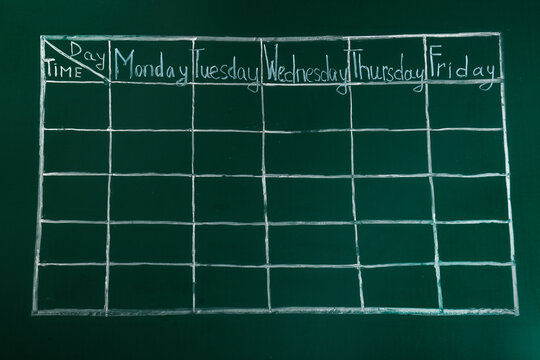 Day
TIME
Monday Tuesday Wednesday Thursday Friday